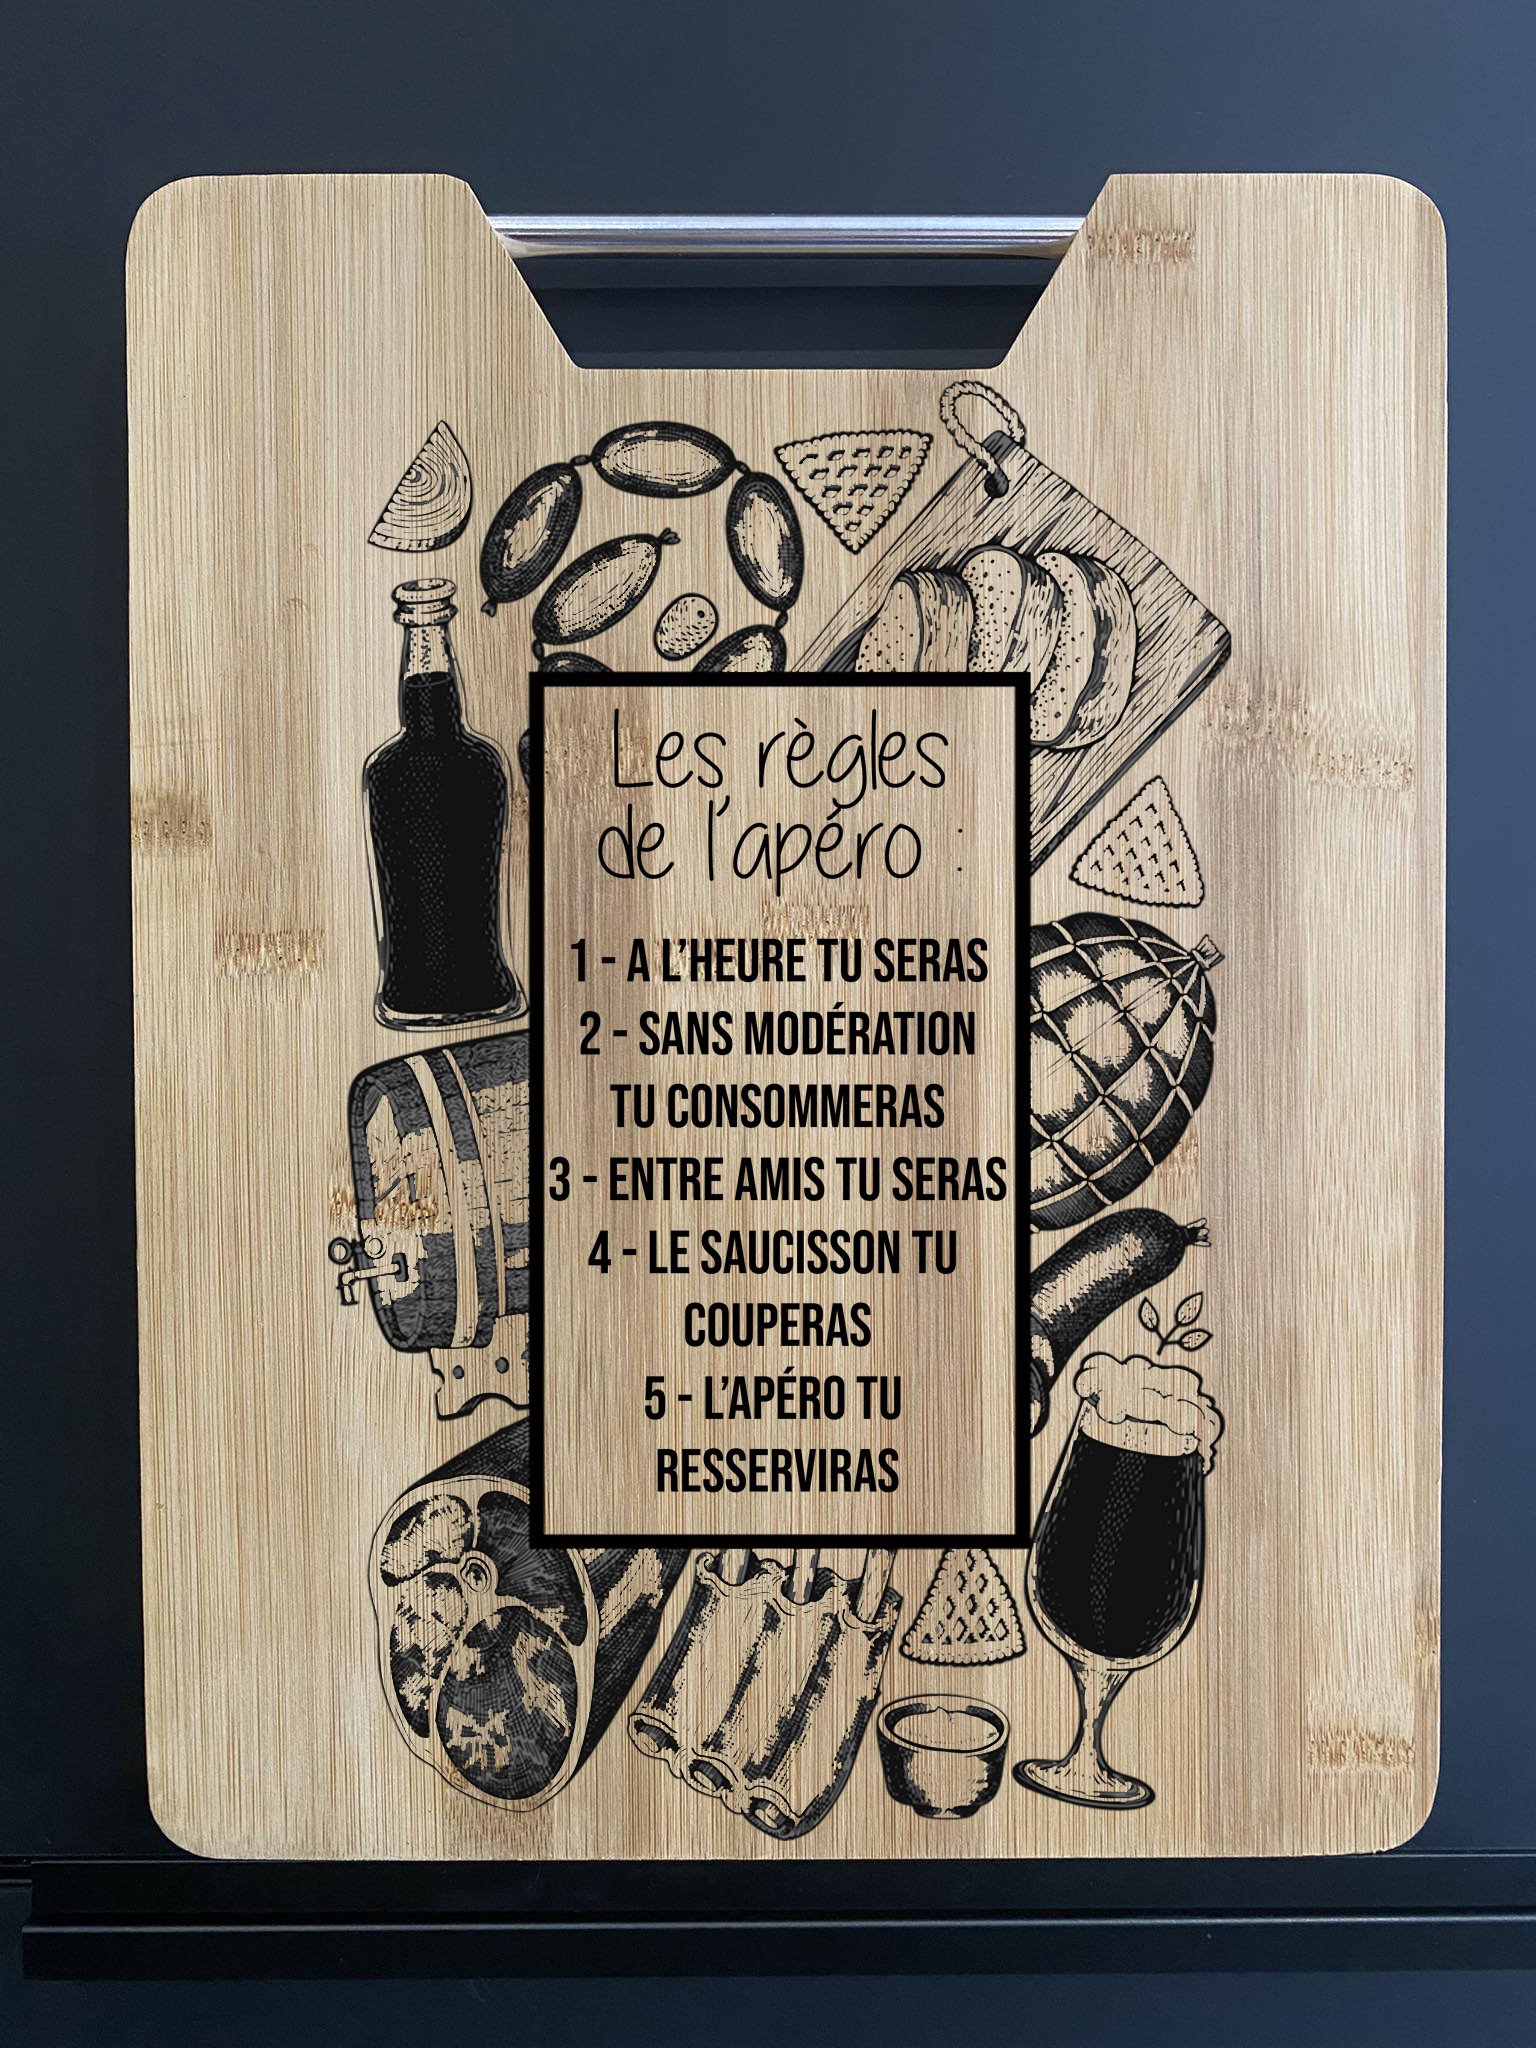 Les règles
de l'apéro :
1 - A L'HEURE TU SERAS
2 - SANS MODÉRATION
TU CONSOMMERAS
3 - ENTRE AMIS TU SERAS
4 - LE SAUCISSON TU
COUPERAS
5 - L'APÉRO TU
RESSERVIRAS